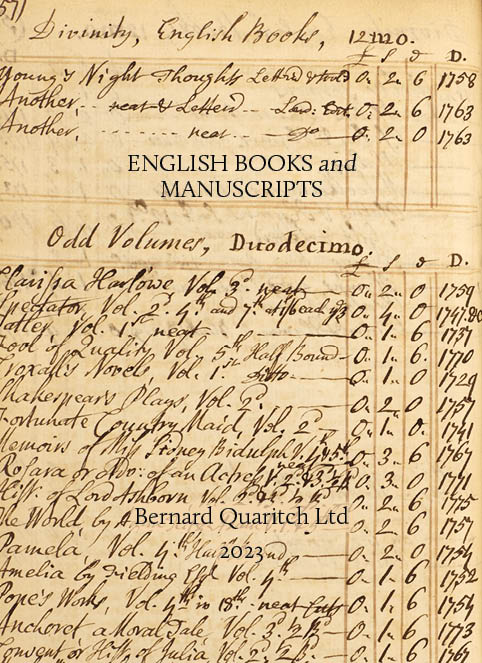 571
Divinity, English Books, 12mo.
£ S d D.
Young's Night Thoughts Letter'd & Gilt 0 „ 2 „ 6 1758
Another, .. neat & Letter'd 0 „ 2 „ 6 1763
Another, ....... neat ... Do 0 „ 2 „ 0 1763
ENGLISH BOOKS and
MANUSCRIPTS
Odd Volumes, Duodecimo.
£ S d D.
Clarissa Harlowe, Vol. 3d. neat 0 „ 2 „ 0 1759
Spectator, Vol. 2d. 4th and 7th 0 „ 4 „ 0
Tatler, Vol. 1st neat 0 „ 1 „ 6 1737
Fool of Quality, Vol. 5th Half Bound 0 „ 1 „ 6 1770
Croxall's Novels, Vol. 1st Ditto 0 „ 1 „ 0 1729
Shakespear's Plays, Vol. 0 „ 2 „ 0 1757
Fortunate Country Maid, Vol. 2d 0 „ 1 „ 0 1741
Memoirs of Miss Sidney Bidulph 0 „ 3 „ 6 1767
Rosara or Adv: of an Actress 0 „ 3 „ 0 1771
Hist: of Lord Ashborn Vol. 0 „ 2 „ 6 1775
The World, by 0 „ 2 „ 6 1757
Bernard Quaritch Ltd
Pamela, Vol. 4th 0 „ 2 „ 0 1754
2023
Amelia by Fielding Esq Vol. 4th 0 „ 1 „ 6 1752
Pope's Works, Vol. 4th in 18th neat 0 „ 1 „ 6 1754
Anchoret, a Moral Tale, Vol. 3d 0 „ 1 „ 6 1773
Convent or Hist: of Julia Vol. 2d 0 „ 1 „ 6 1767